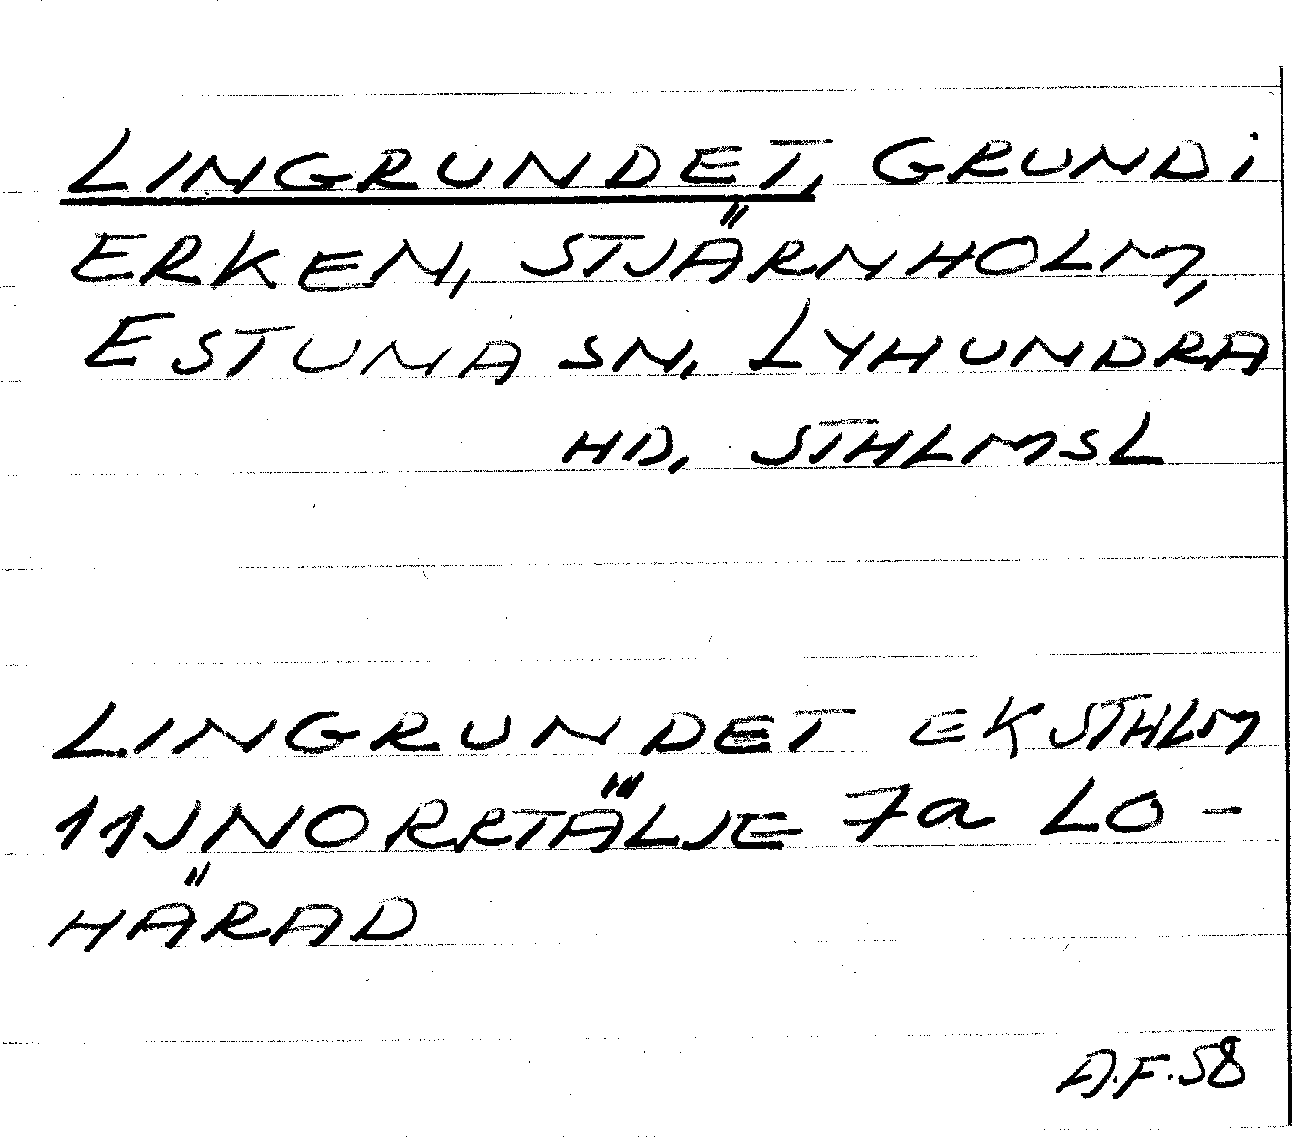 LINGRUNDET, GRUND i
ERKEN, STJÄRNHOLM,
ESTUNA SN, LYHUNDRA
HD, STHLMSL
LINGRUNDET EK STHLM
11J NORRTÄLJE 7a LO-
HÄRAD
A.F.58